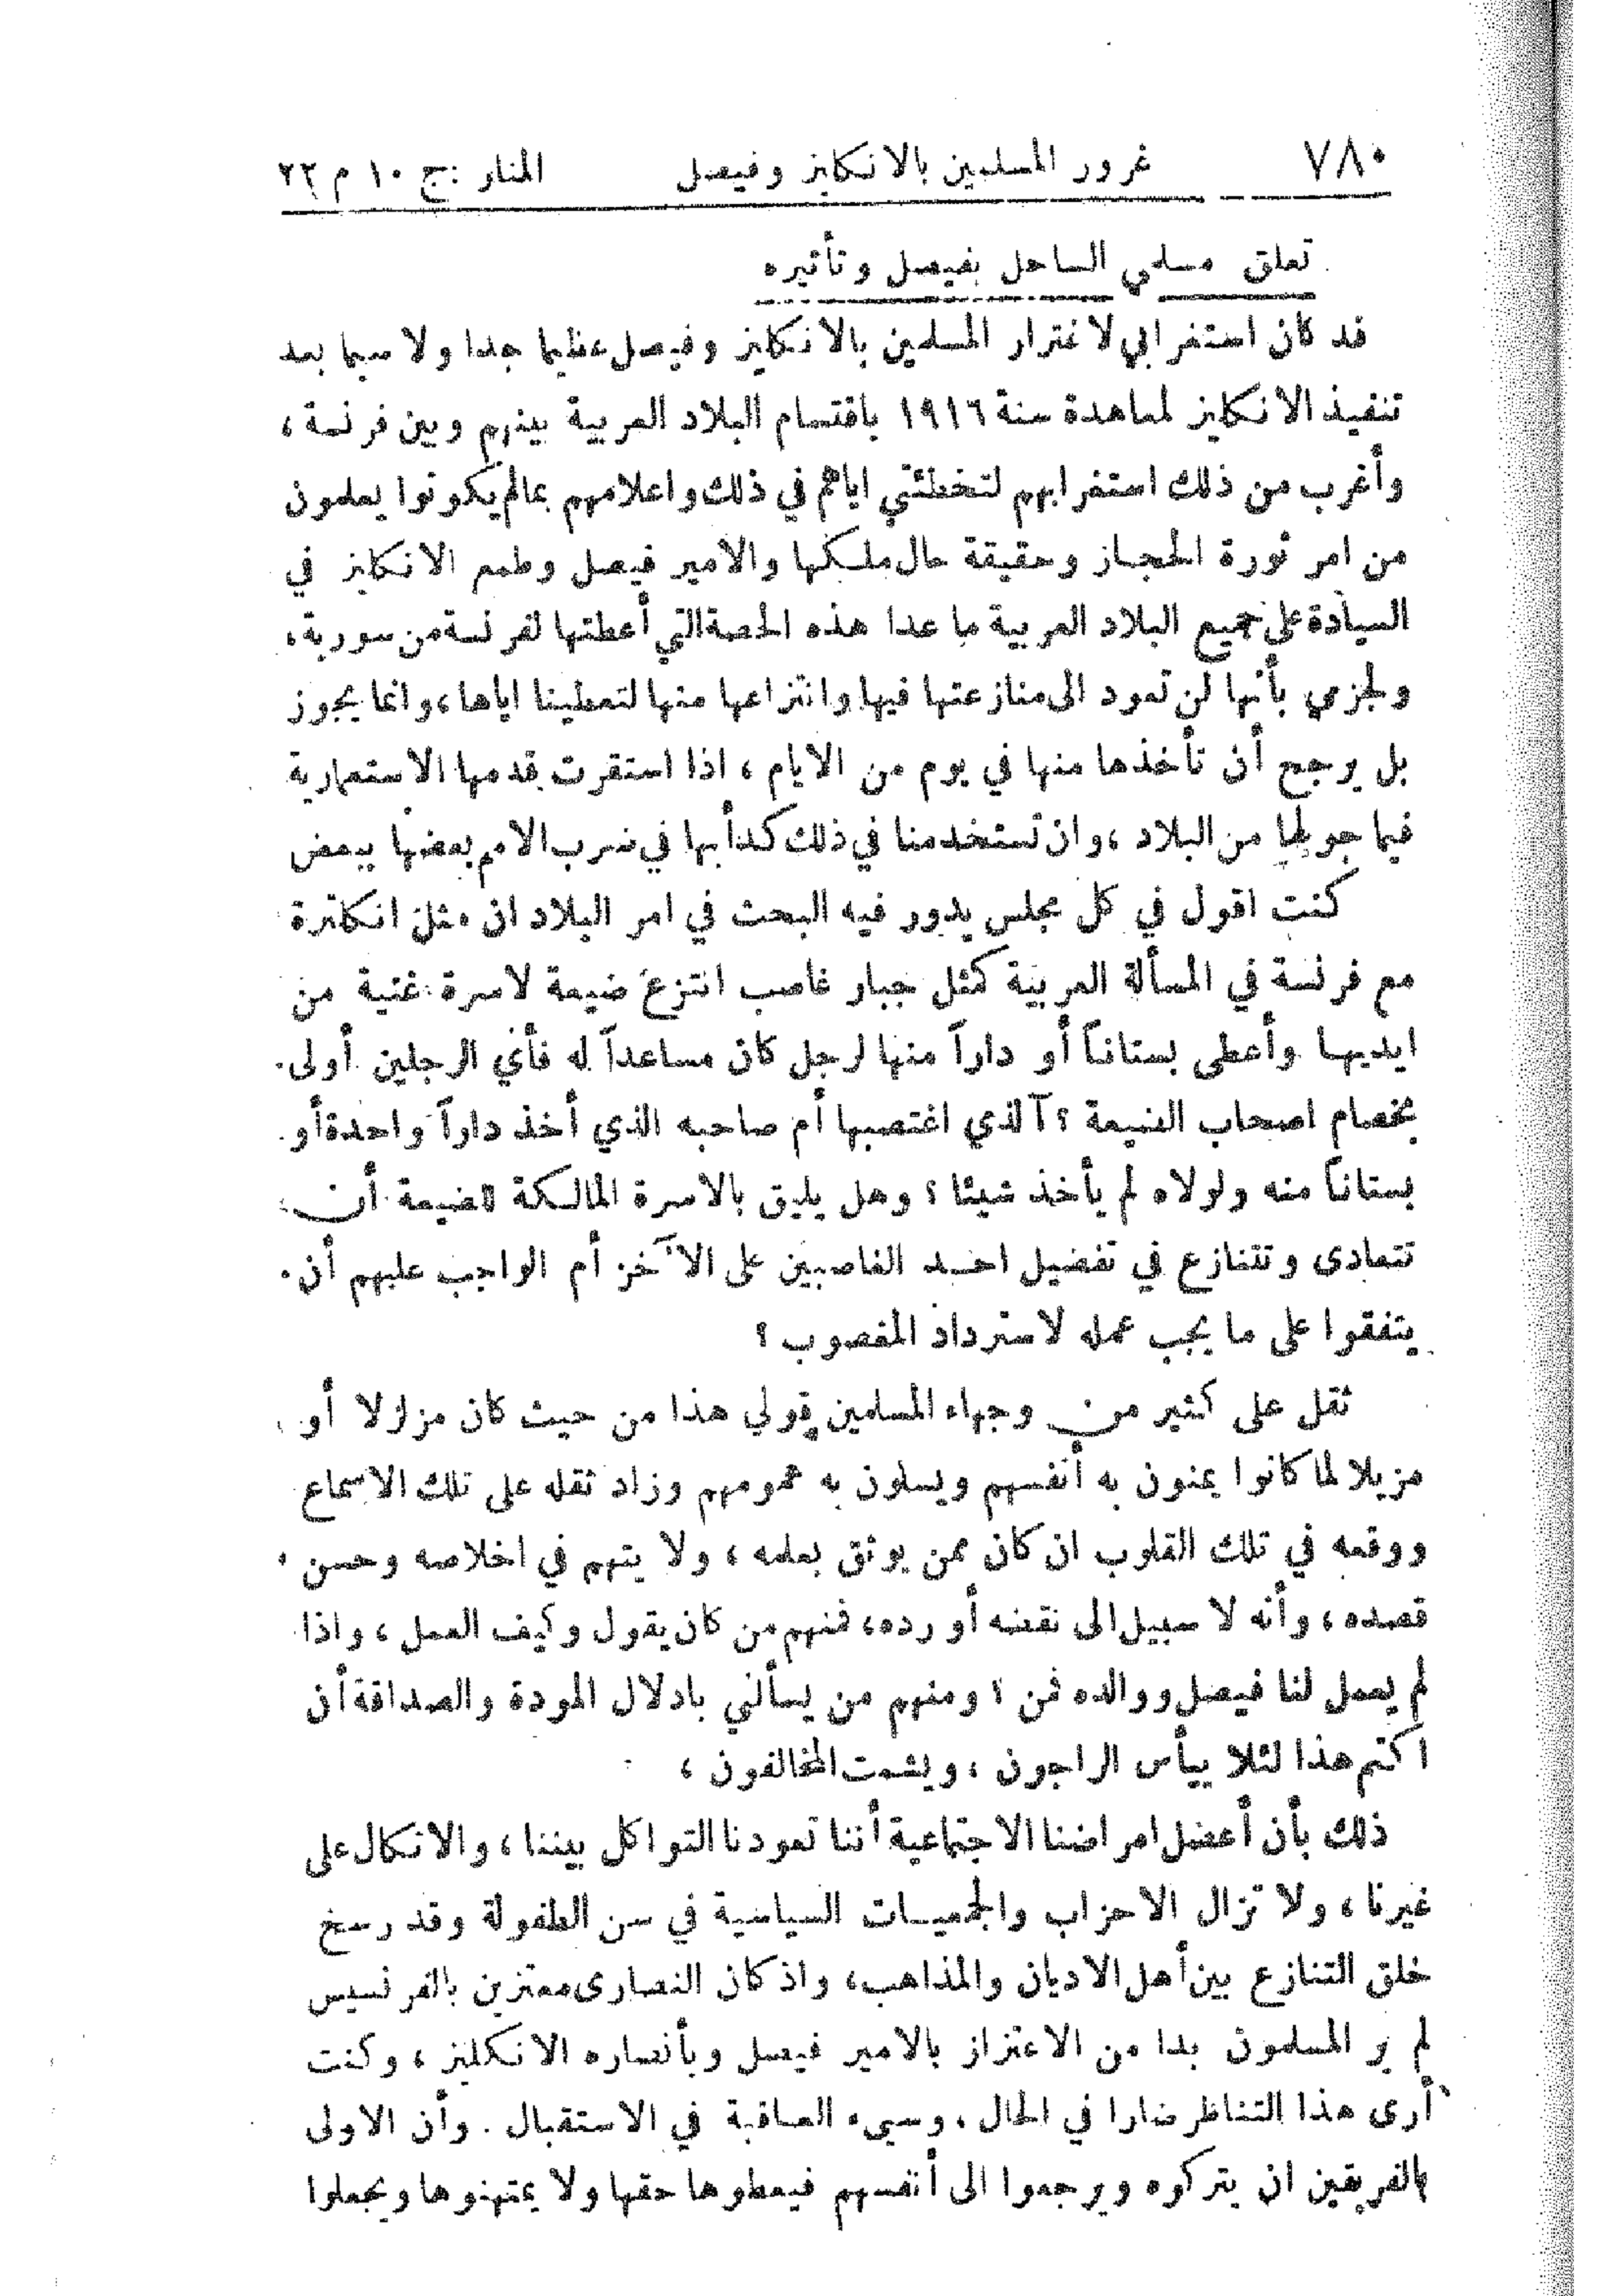 ٧٨٠ غرور المسلمين بالانكليز وفيصل المنار : ج ١٠ م ٢٢
تعلق مسلمي الساحل بفيصل وتأثيره
قد كان استغرابي لاغترار المسلمين بالانكليز وفيصل عظيما جدا ولا سيما بعد
تنفيذ الانكليز لمعاهدة سنة ١٩١٦ باقتسام البلاد العربية بينهم وبين فرنسة ،
وأغرب من ذلك استغرابهم لتخطئتي اياهم في ذلك واعلامهم بما لم يكونوا يعلمون
من امر ثورة الحجاز وحقيقة حال ملكها والامير فيصل وطمع الانكليز في
السيادة على جميع البلاد العربية ما عدا هذه الحصة التي أعطتها لفرنسة من سورية ،
ولجزمي بأنها لن تعود الى منازعتها فيها وانتزاعها منها لتعطينا اياها ، وانما يجوز
بل يرجح أن تأخذها منها في يوم من الايام ، اذا استقرت قدمها الاستعمارية
فيما حولها من البلاد ، وان تستخدمنا في ذلك كدأبها في ضرب الامم بعضها ببعض
كنت اقول في كل مجلس يدور فيه البحث في امر البلاد ان مثل انكلترة
مع فرنسة في المسألة العربية كمثل جبار غاصب انتزع ضيعة لاسرة غنية من
ايديها وأعطى بستاناً أو داراً منها لرجل كان مساعداً له فأي الرجلين أولى
بخصام اصحاب الضيعة ؟ آلذي اغتصبها أم صاحبه الذي أخذ داراً واحدة أو
بستاناً منه ولولاه لم يأخذ شيئا ؟ وهل يليق بالاسرة المالكة للضيعة أن
تتعادى وتتنازع في تفضيل احد الغاصبين على الآخر أم الواجب عليهم أن
يتفقوا على ما يجب عمله لاسترداد المغصوب ؟
ثقل على كثير من وجهاء المسلمين قولي هذا من حيث كان مزلزلا أو
مزيلا لما كانوا يمنون به أنفسهم ويسلون به همومهم وزاد ثقله على تلك الاسماع
ووقعه في تلك القلوب ان كان ممن يوثق بعلمه ، ولا يتهم في اخلاصه وحسن
قصده ، وأنه لا سبيل الى نقضه أو رده ، فمنهم من كان يقول وكيف العمل ، واذا
لم يعمل لنا فيصل ووالده فمن ؟ ومنهم من يسألني بادلال المودة والصداقة أن
اكتم هذا لئلا ييأس الراجون ، ويشمت المخالفون ،
ذلك بأن أعضل امراضنا الاجتماعية أننا تعودنا التواكل بيننا ، والاتكال على
غيرنا ، ولا تزال الاحزاب والجمعيات السياسية في سن الطفولة وقد رسخ
خلق التنازع بين أهل الاديان والمذاهب ، واذ كان النصارى معتزين بالفرنسيس
لم ير المسلمون بدا من الاعتزاز بالامير فيصل وبأنصاره الانكليز ، وكنت
أرى هذا التناظر ضارا في الحال ، وسيء العاقبة في الاستقبال . وأن الاولى
بالفريقين ان يتركوه ويرجعوا الى أنفسهم فيعطوها حقها ولا يمتهنوها ويجعلوا